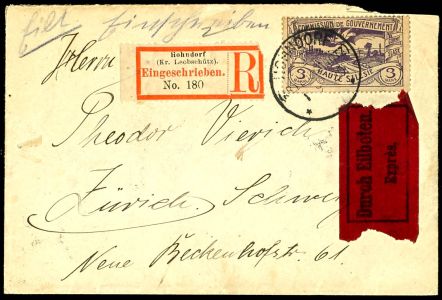 Eilt Einschreiben
COMMISSION DE GOUVERNEMENT
3 3
HAUTE SILÉSIE
HOHNDORF
Hohndorf
(Kr. Leobschütz).
Eingeschrieben.
No. 180
R
Herrn
Theodor Vierich
Zürich. Schweiz
Neue Beckenhofstr. 61
Durch Eilboten.
Exprès.